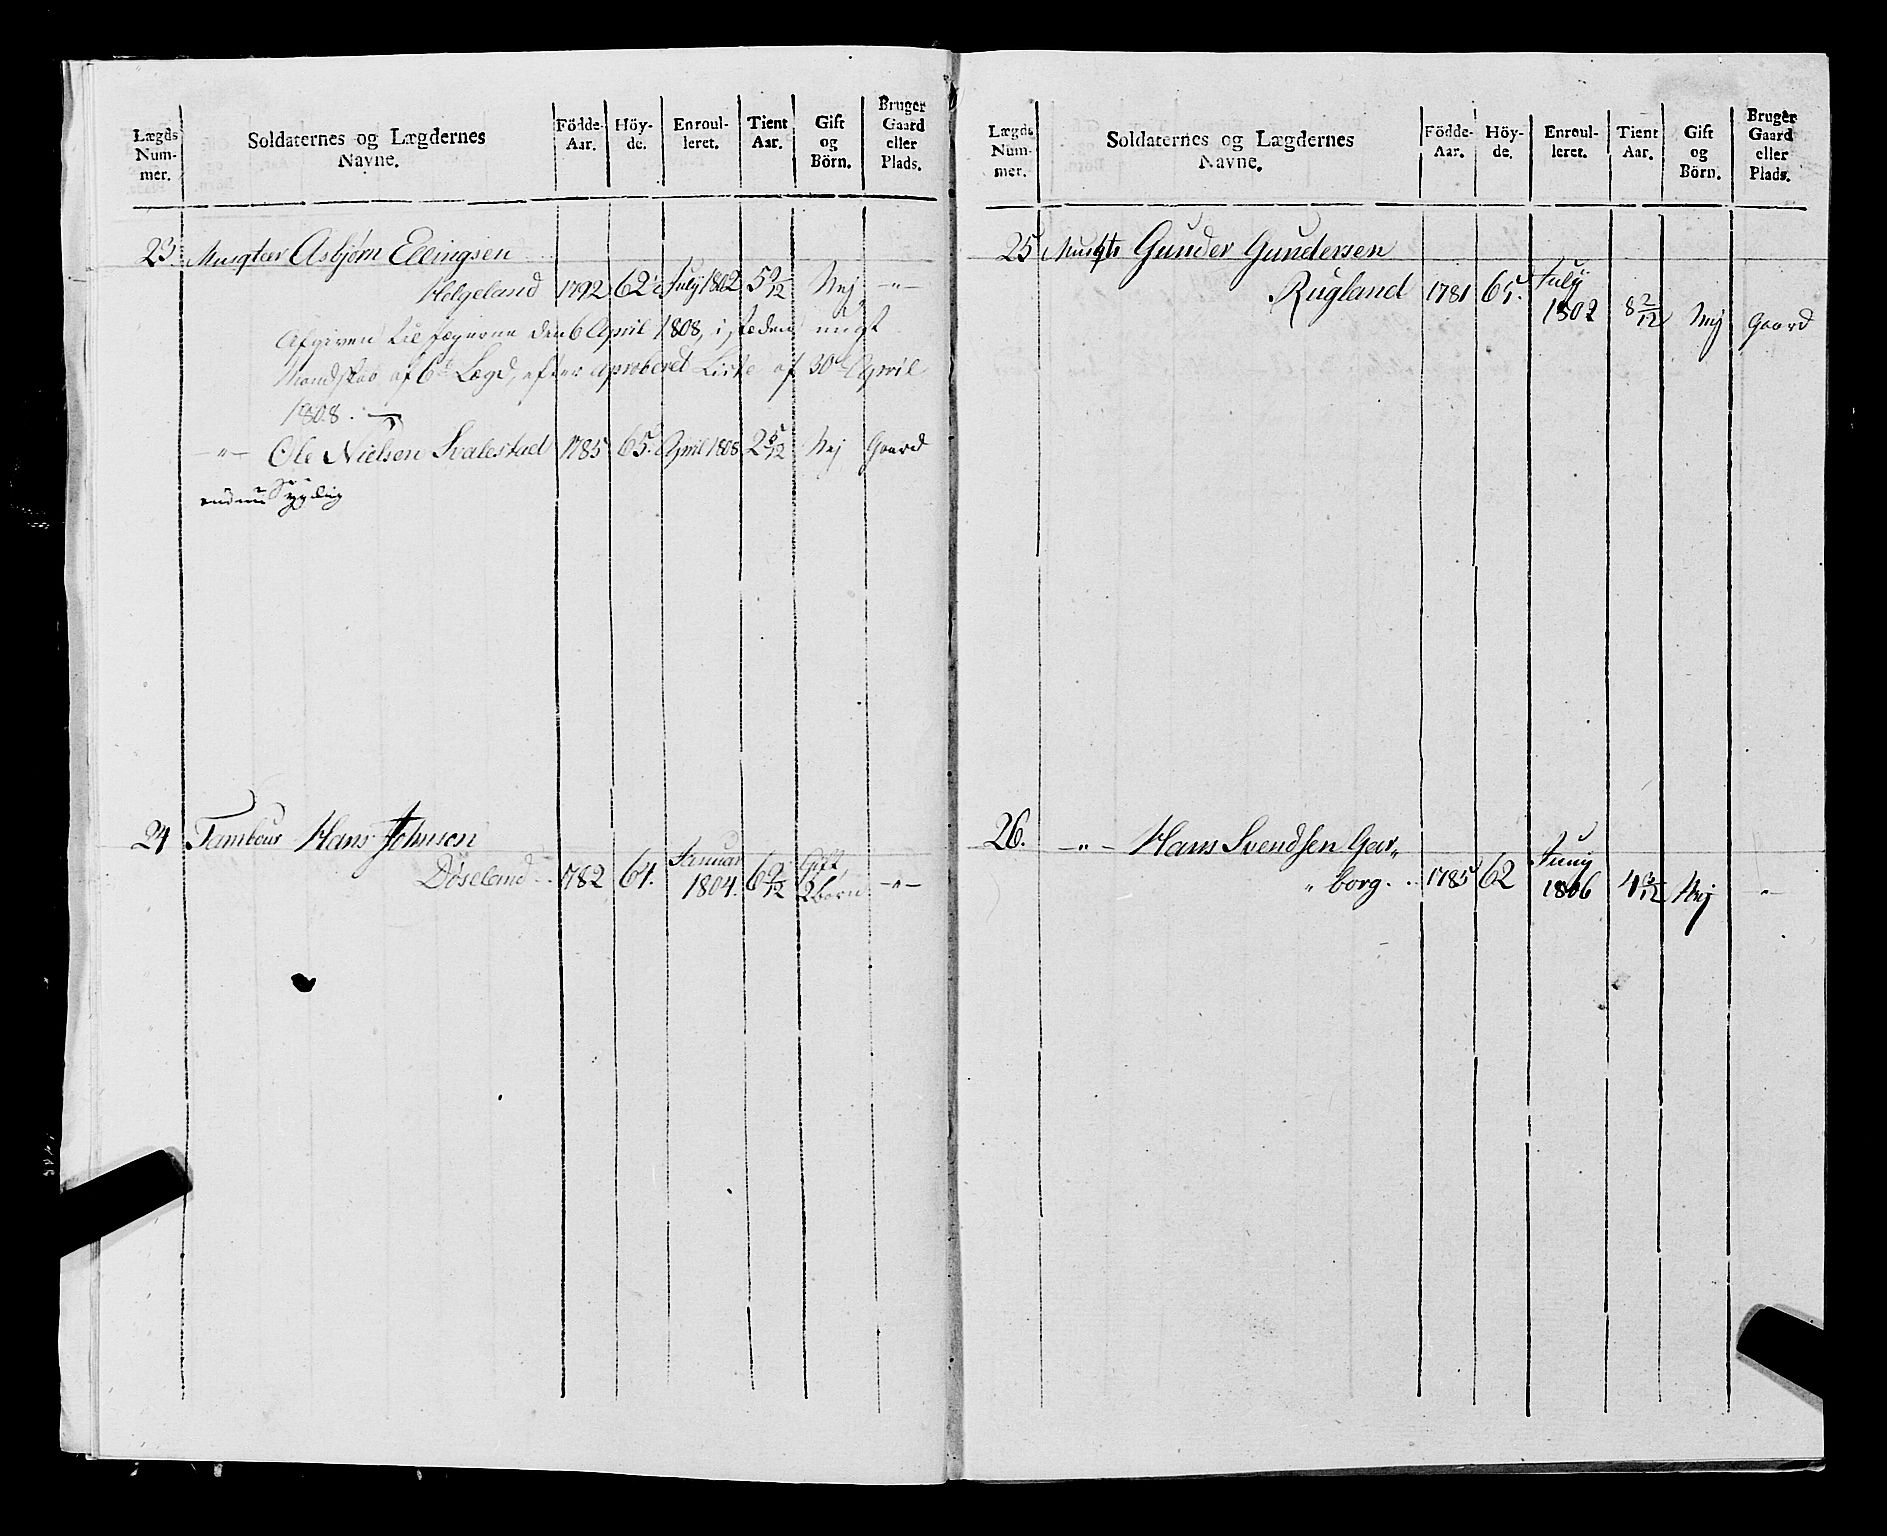 Lægds Num- mer. | Soldaternes og Lægdernes Navne. | Födde- Aar. | Höy- de. | Enroul- leret. | Tient Aar. | Gift og Börn. | Bruger Gaard eller Plads.
23. Musqteer Asbjørn Ellingsen
Helgeland 1792 62 July 1802 5 9/12 Nej -"-
Afgiven til Jægerne den 6 April 1808, i steden
Mandskab af 6te Lægd, efter aproberet Liste af 30te April
1808.
-"- Ole Nielsen Svalestad 1785 65. April 1808 2 5/12 Nej Gaard
endnu Sygelig
24 Tambour Hans Johnsen
Döseland 1782 61. Januar 1804. 6 9/12 Gift, 2 børn -"-
Lægds Num- mer. | Soldaternes og Lægdernes Navne. | Födde- Aar. | Höy- de. | Enroul- leret. | Tient Aar. | Gift og Börn. | Bruger Gaard eller Plads.
25 Musqtr Gunder Gundersen
Rugland 1781 65. July 1802 8 2/12 Nej Gaard
26. -"- Hans Svendsen Gar„
„borg. 1785 62 Juny 1806 4 3/12 Nej "